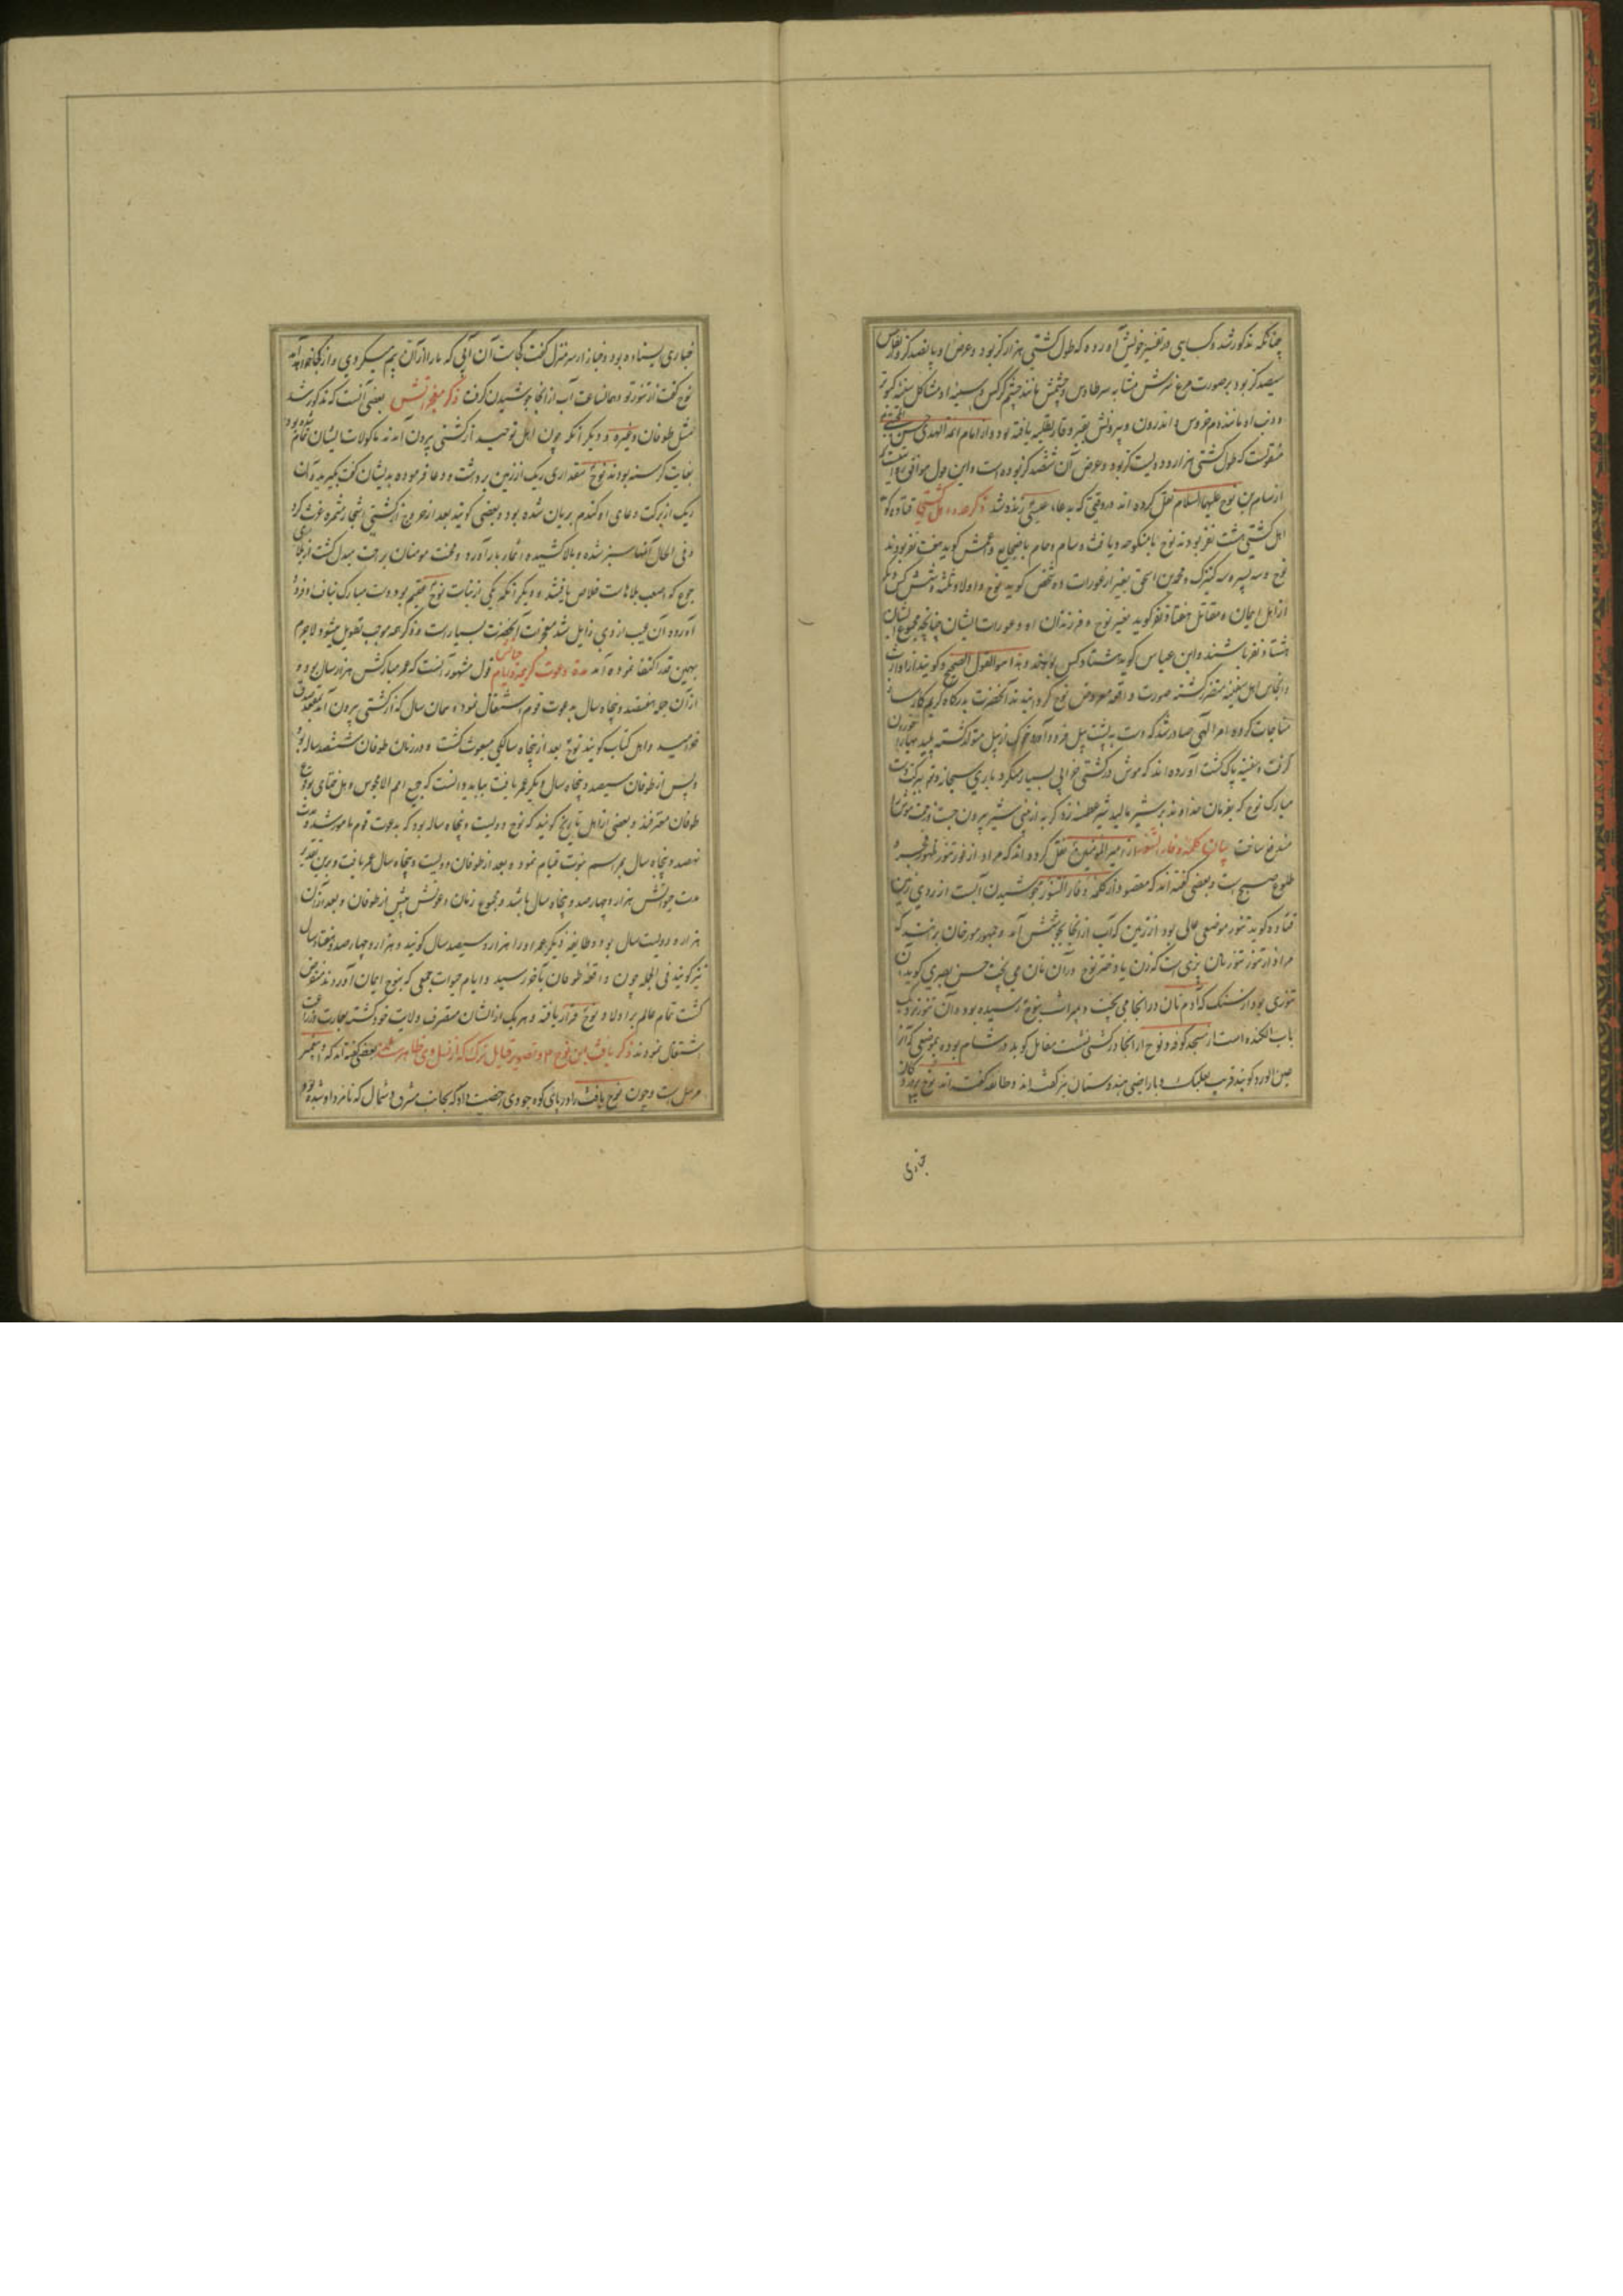 چنانکه مذکور شد و کسایی در تفسیر خویش آورده که طول کشتی هزار گز بود و عرض او پانصد گز و ارتفاعش
سیصد گز بود بر صورت مرغ سرش مشابه سر طاوس و چشمش مانند چشم کرکس و سینه او مشاکل سینه کبوتر
و ذنب او مانند دم خروس و اندرون و بیرونش بقیر و قار تطلیه یافته بود و از امام ائمة الهدی حسن المجتبی
منقولست که طول کشتی هزار و دویست گز بود و عرض آن ششصد گز بوده است و این قول موافق
از سام بن نوح علیهما السلام نقل کرده اند در وقتی که بدعاء عیسی زنده شد ذکر عدد اهل کشتی قتاده گوید
اهل کشتی هشت نفر بودند نوح با منکوحه و یافث و سام و حام با ضجایع و اعمش گوید هفت نفر بودند
نوح و سه پسر و سه کنیزک و محمد بن اسحق بغیر از عورات ده شخص گوید نوح و اولاد ثلثه و شش کس دیگر
از اهل ایمان و مقاتل هفتاد نفر گوید بغیر نوح و فرزندان او و عورات ایشان چنانچه مجموع ایشان
هشتاد نفر باشند و ابن عباس گوید هشتاد کس بودند و هذا هو القول الصحیح و گویند از ارواث
و انجاس اهل سفینه متضرر گشته صورت واقعه معروض نوح گردانیدند آنحضرت بدرگاه کریم کارساز
مناجات کرده امر الهی صادر شد که دست به پشت پیل فرود آورد خوک از پیل متولد گشته پلیدیها را خوردن
گرفت و سفینه پاک گشت آورده اند که موش در کشتی خرابی بسیار میکرد باری سبحانه و تعالی ببرکت دست
مبارک نوح که بفرمان خداوند بر شیر مالید شیر عطسه زد گربه از بینی شیر بیرون جست و زحمت موش را
مندفع ساخت بیان کلمه و فار التنور از امیر المؤمنین نقل کرده اند که مراد از فور تنور ظهور فجر و
طلوع صبح است و بعضی گفته اند که مقصود از کلمه و فار التنور جوشیدن آبست از روی زمین
قتاده گوید تنور موضعی عالی بود از زمین که آب از آنجا بجوشش آمد و جمهور مورخان برانند که
مراد از تنور تنور نان پزی است که زن یا دختر نوح در آن نان می پخت حسن بصری گوید آن
تنوری بود از سنگ که آدم نان در آنجا می پخت و بمیراث بنوح رسیده بود و آن تنور نزدیک
باب الکنده است از مسجد کوفه و نوح از آنجا در کشتی نشست مقاتل گوید در شام بوده بموضعی که آنرا
عین الورد گویند قریب بعلبک و باراضی هندوستان نیز گفته اند و طایفه گفته اند نوح بر در دکان
خبازی
خبازی ایستاده بود و خباز از سر هزل گفت کجاست آن آبی که ما را از آن بیم میکردی و از کجا خواهد آمد
نوح گفت از تنور تو و همان ساعت آب از آنجا جوشیدن گرفت ذکر معجزاتش بعضی آنست که مذکور شد
مثل طوفان و غیره و دیگر آنکه چون اهل توحید از کشتی بیرون آمدند ماکولات ایشان تمام شده بود
بغایت گرسنه بودند نوح مقداری ریگ از زمین برداشت و دعا فرموده بدیشان گفت بگیرید آن
ریگ از برکت دعای او گندم بریان شده بود و بعضی گویند بعد از خروج از کشتی اشجار مثمره غرس کرد
و فی الحال آنها سبز شده و بالا کشیده اثمار بار آورد و محنت مومنان براحت مبدل گشت و از بلای
جوع که اصعب بلاهاست خلاص یافتند و دیگر آنکه یکی از بنات نوح عقیم بود دست مبارک بناف او فرود
آورده آن عیب از وی زایل شد معجزات آنحضرت بسیار است و ذکر همه موجب تطویل میشود لاجرم
بهمین قدر اکتفا نموده آمد مدة دعوت کریمه و ایام حیاتش قول مشهور آنست که عمر مبارکش هزار سال بود و
از آن جمله نهصد و پنجاه سال بدعوت قوم اشتغال نمود و همان سال که از کشتی بیرون آمد
خرامید و اهل کتاب گویند نوح بعد از پنجاه سالگی مبعوث گشت و در زمان طوفان ششصد ساله بود
و پس از طوفان سیصد و پنجاه سال دیگر عمر یافت بباید دانست که جمیع امم الا مجوس و اهل ختای بوقوع
طوفان معترفند و بعضی از اهل تاریخ گویند که نوح دویست و پنجاه ساله بود که بدعوت قوم مامور شد و مدت
نهصد و پنجاه سال بمراسم نبوت قیام نمود و بعد از طوفان دویست و پنجاه سال عمر یافت و برین تقدیر
مدت حیوتش هزار و چهار صد و پنجاه سال باشد و مجموع زمان دعوتش پیش از طوفان و بعد از آن
هزار و دویست سال بود و طایفه دیگر عمر او را هزار و سیصد سال گویند و هزار و چهار صد و هفتاد سال
نیز گویند فی الجمله چون واقعه طوفان بآخر رسید و ایام حیوة جمعی که بنوح ایمان آوردند منقرض
گشت تمام عالم بر اولاد نوح قرار یافته و هر یک از ایشان متصرف ولایت خود گشته بعمارت و زراعت
اشتغال نمودند ذکر یافث بن نوح و تصویر قبایل ترک که از نسل وی ظاهر شدند بعضی گفته اند که او پیغمبر
مرسل است و چون نوح یافث را در پای کوه جودی رخصت داد که بجانب مشرق و شمال که نامزد او شده بود